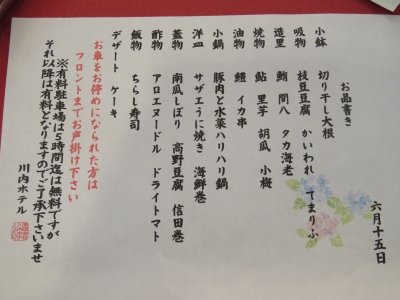 六月十五日
お品書き
小鉢 切り干し大根
吸物 枝豆豆腐 かいわれ てまりふ
造里 鮪 間八 タカ海老
焼物 鮎 里芋 胡瓜 小梅
油物 鱧 イカ串
小鍋 豚肉と水菜ハリハリ鍋
洋皿 サザエうに焼き 海鮮巻
蓋物 南瓜しぼり 高野豆腐 信田巻
酢物 アロエヌードル ドライトマト
飯物 ちらし寿司
デザート ケーキ
お車をお停めになられた方は
フロントまでお声掛け下さい
※有料駐車場は5時間迄は無料ですが
それ以降は有料となりますのでご了承下さいませ
川内ホテル